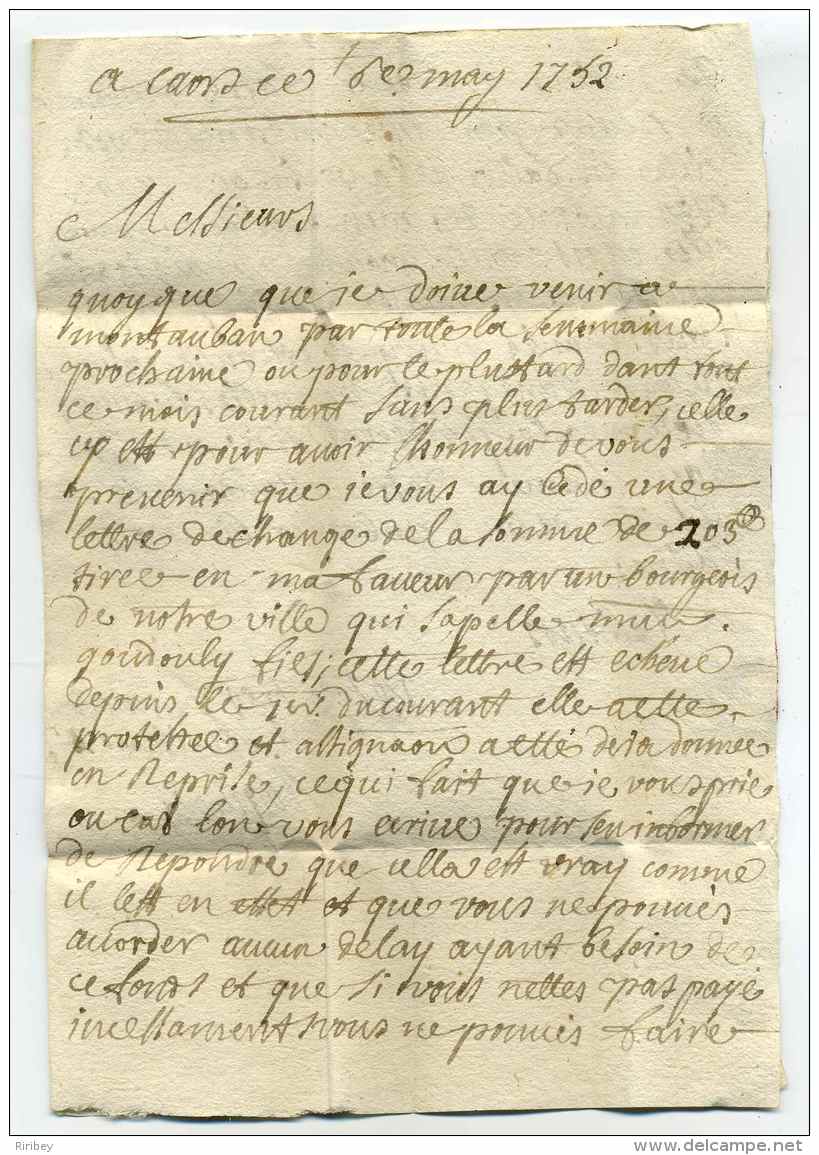 a Caors ce 6e may 1752
Messieurs
quoyque que je doive venir a
montauban par toute la semmaine
prochaine ou pour le plustard dant tout
ce mois courant sans plus tarder, celle
cy est pour avoir lhonneur de vous
prevenir que je vous ay cedé une
lettre de change de la somme de 203
tiree en ma faveur par un bourgeois
de notre ville qui sapelle
goudouly fies, cette lettre est echeue
depuis le jer. du courant elle a etté
protestee et assignaon a etté deja donnee
en Reprise, ce qui fait que je vous prie
ou cas lon vous ecrive pour sen informer
de Repondre que cella est vray comme
il lest en effet et que vous ne pouvès
accorder aucun delay ayant besoin de
ce fonds et que si vous nettes pas payé
incessament vous ne pouvès faire
Riribey
www.delcampe.net